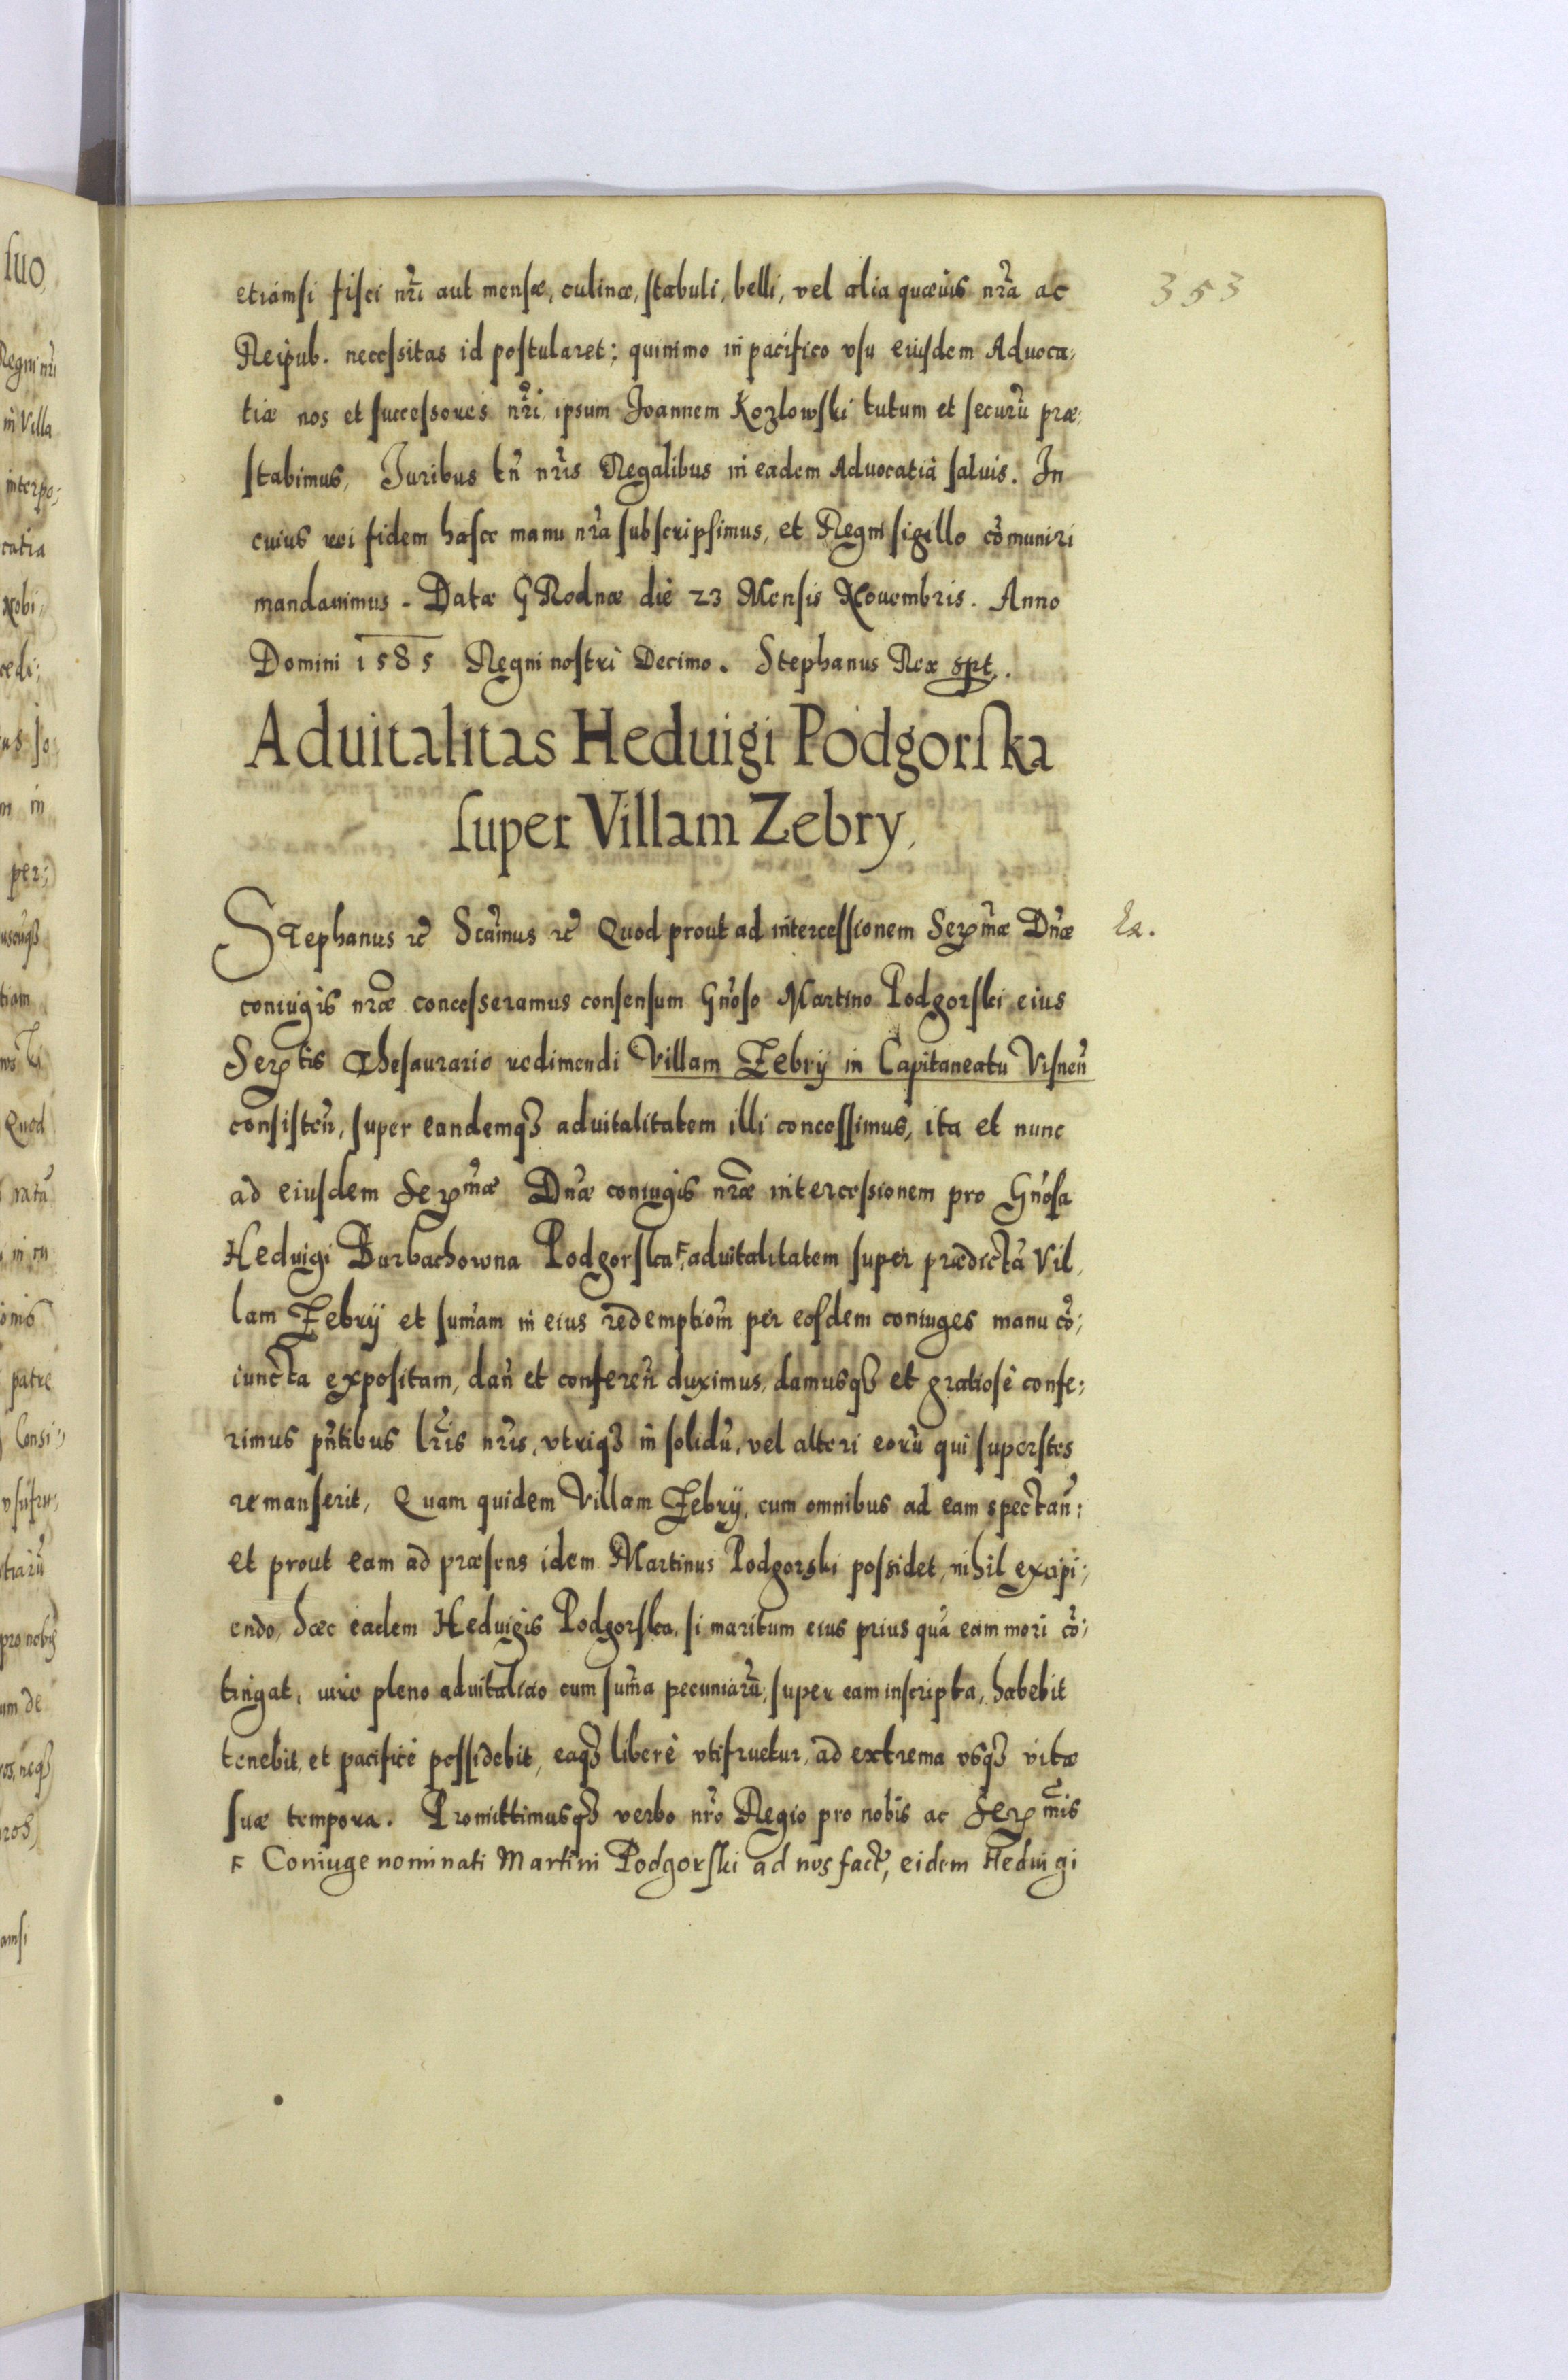 353
etiamsi fisci nr̃i aut mensæ, culinæ, stabuli, belli, vel alia quævis nr̃a ac
Reipub. necessitas id postularet; quinimo in pacifico vsu eiusdem Aduoca=
tiæ nos et successores nr̃i, ipsum Joannem Kozlowski tutum et securũ præ=
stabimus, Juribus tñ nr̃is Regalibus in eadem Aduocatia saluis. In
cuius rei fidem hasce manu nr̃a subscripsimus, et Regni sigillo cõmuniri
mandauimus. Datæ GRodnæ die 23 Mensis Nouembris. Anno
Domini 1585 Regni nostri Decimo. Stephanus Rex spt.
Aduitalitas Heduigi Podgorska
super Villam Zebry,
Stephanus etc̃ Scimus etc̃ Quod prout ad intercessionem Serm̃æ Dñæ
coniugis nr̃æ concesseramus consensum Gñoso Martino Podgorski eius
Sertis Thesaurario redimendi Villam Zebrÿ in Capitaneatu Visneñ
consisteñ, super eandemqȝ aduitalitatem illi concessimus, ita et nunc
ad eiusdem Serm̃æ Dñæ coniugis nr̃æ intercessionem pro Gñosa
Heduigi Burbachowna Podgorska, F aduitalitatem super prædictã Vil,
lam Zebrÿ et sum̃am in eius redemptiom̃ per eosdem coniuges manu cõ=
iuncta expositam, dañ et confereñ duximus, damusqȝ et gratiosè confe=
rimus pñtibus lr̃is nr̃is, vtriqȝ in solidũ, vel alteri eorũ qui superstes
remanserit, Quam quidem Villam Zebrÿ, cum omnibus ad eam spectañ:
et prout eam ad præsens idem Martinus Podgorski possidet, nihil excipi=
endo, hæc eadem Heduigis Podgorska, si maritum eius prius quã eam mori cõ=
tingat, iure pleno aduitalicio cum sum̃a pecuniarũ, super eam inscripta, habebit
tenebit, et pacificè possidebit, eaqȝ liberè vtifruetur, ad extrema vsqȝ vitæ
suæ tempora. Promittimusqȝ verbo nr̃o Regio pro nobis ac Serm̃is
F Coniuge nominati Martini Podgorski ad nos fact, eidem Heduigi